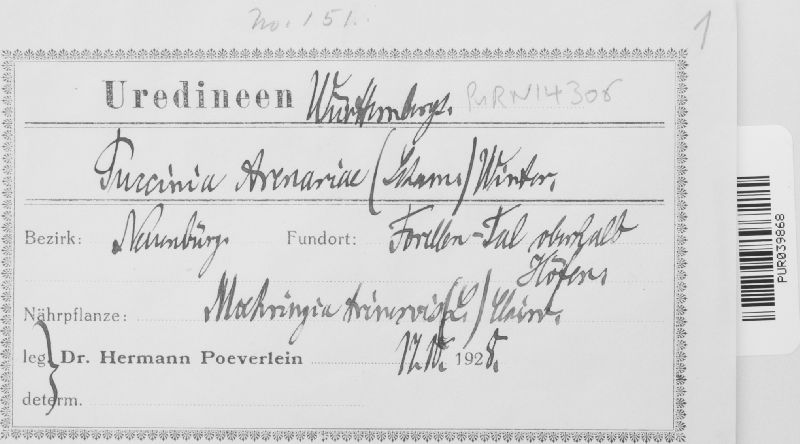 No. 151.
1
Uredineen Württembergs. PURN14306
Puccinia Arenariae (Schum.) Winter.
Bezirk: Neuenbürg. Fundort: Forellen-Tal oberhalb
Höfen.
Nährpflanze: Moehringia trinervia (L.) Clairv.
leg. Dr. Hermann Poeverlein 1928.
determ.
PUR039868